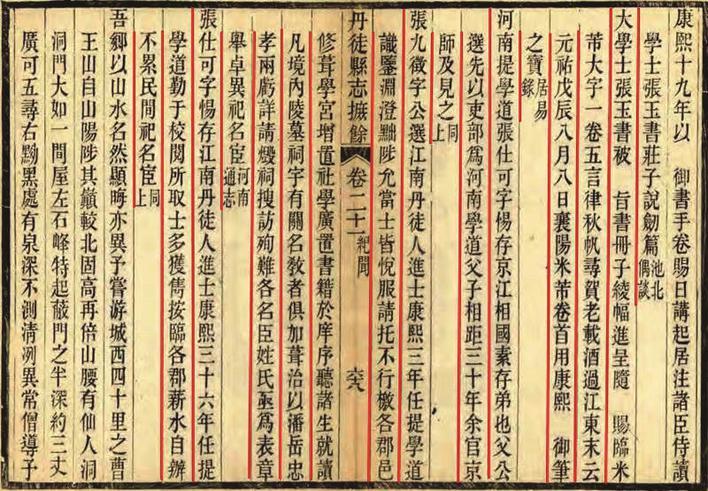 康熙十九年以　御書手卷賜日講起居注諸臣侍讀
學士張玉書莊子說劒篇池北偶談
大學士張玉書被　旨書冊子綾幅進呈隨　賜臨米
芾大字一卷五言律秋帆尋賀老載酒過江東末云
元祐戊辰八月八日襄陽米芾卷首用康熙　御筆
之寶居易錄
河南提學道張仕可字惕存京江相國素存弟也父公
選先以吏部爲河南學道父子相距三十年余官京
師及見之同上
張九徵字公選江南丹徒人進士康熙三年任提學道
識鑒淵澄黜陟允當士皆悅服請托不行檄各郡邑
丹徒縣志摭餘　卷二十一　紀聞　六八
修葺學宮增置社學廣置書籍於庠序聽諸生就讀
凡境內陵墓祠宇有關名教者俱加葺治以潘岳忠
孝兩虧詳請燬祠搜訪殉難各名臣姓氏亟爲表章
舉卓異祀名宦河南通志
張仕可字惕存江南丹徒人進士康熙三十六年任提
學道勤于校閱所取士多獲雋按臨各郡薪水自辦
不累民間祀名宦同上
吾鄉以山水名然顯晦亦異予嘗游城西四十里之曹
王山自山陽陟其巔較北固高再倍山腰有仙人洞
洞門大如一間屋左石峰特起蔽門之半深約三丈
廣可五尋右黝黑處有泉深不測清冽異常僧導予